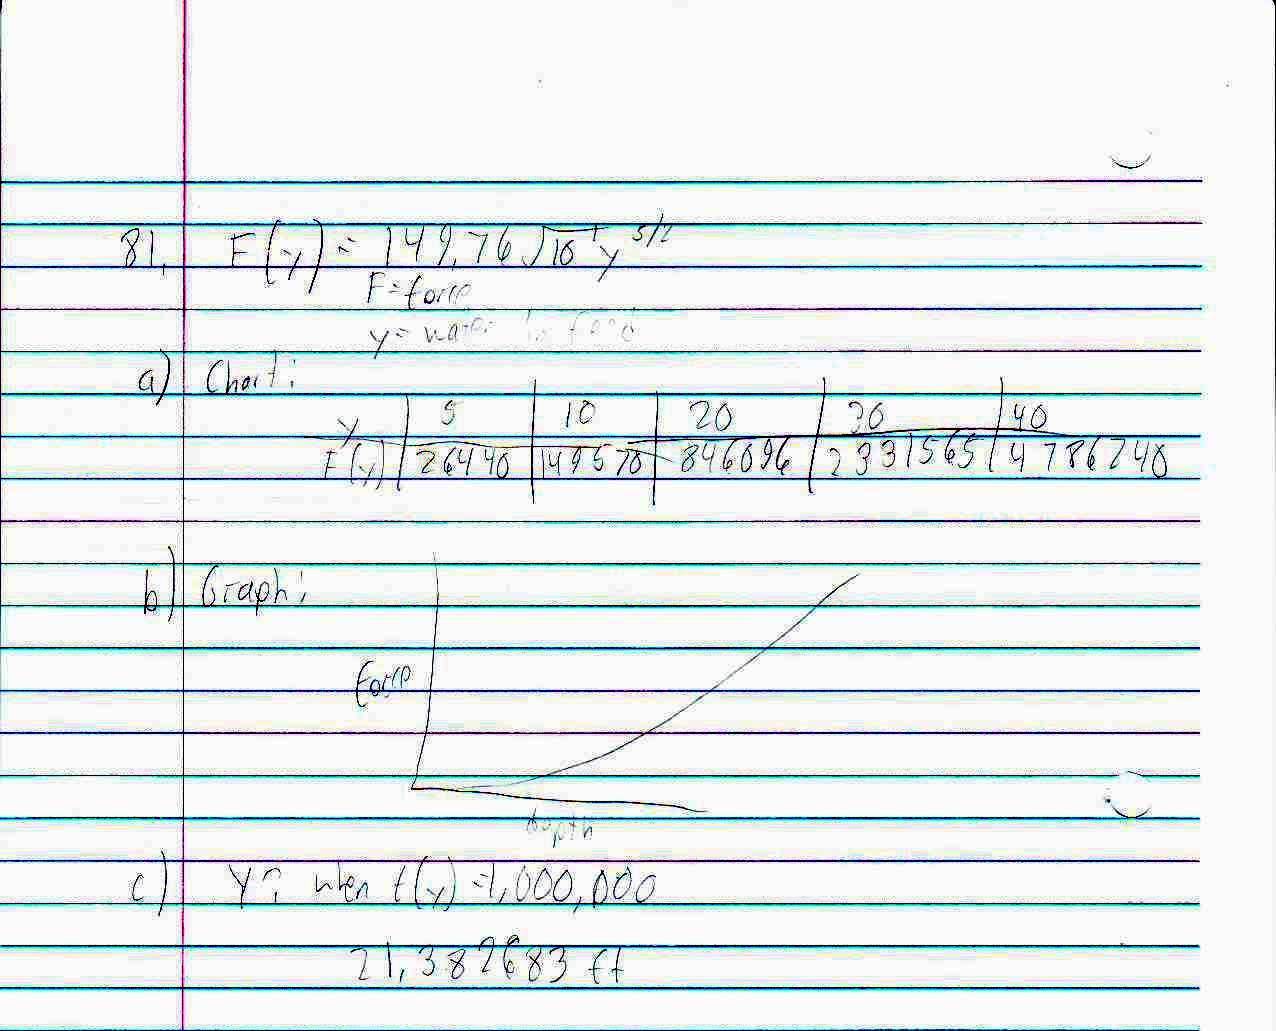 81. F(y) = 149.76 √10 y^5/2
F = force
y = water in feed
a) Chart:
y | 5 | 10 | 20 | 30 | 40
F(y) | 26440 | 149570 | 846096 | 2331565 | 4786240
b) Graph:
force
depth
c) y = when f(y) = 1,000,000
21.382683 ft